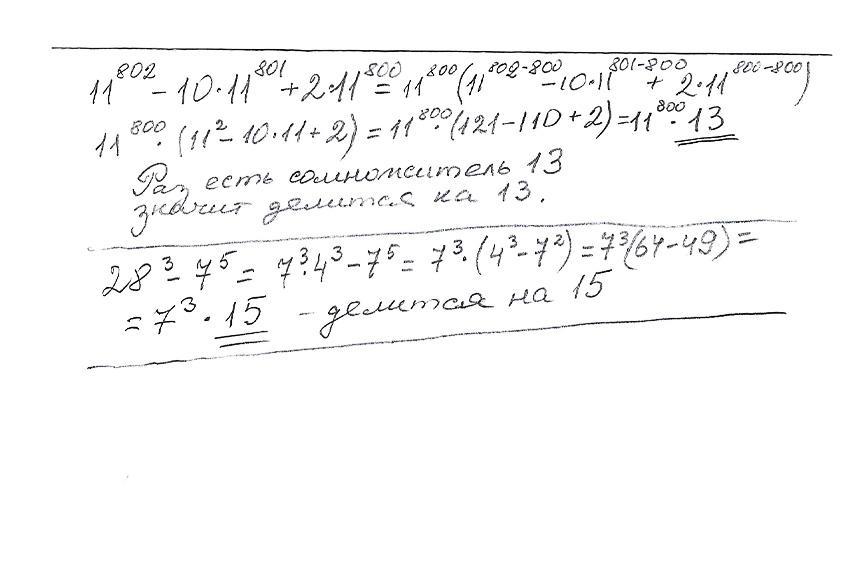 11⁸⁰² - 10·11⁸⁰¹ + 2·11⁸⁰⁰ = 11⁸⁰⁰(11⁸⁰²⁻⁸⁰⁰ - 10·11⁸⁰¹⁻⁸⁰⁰ + 2·11⁸⁰⁰⁻⁸⁰⁰)
11⁸⁰⁰·(11² - 10·11 + 2) = 11⁸⁰⁰·(121 - 110 + 2) = 11⁸⁰⁰·13
Раз есть сомножитель 13
значит делится на 13.
28³ - 7⁵ = 7³·4³ - 7⁵ = 7³·(4³ - 7²) = 7³(64 - 49) =
= 7³·15 - делится на 15